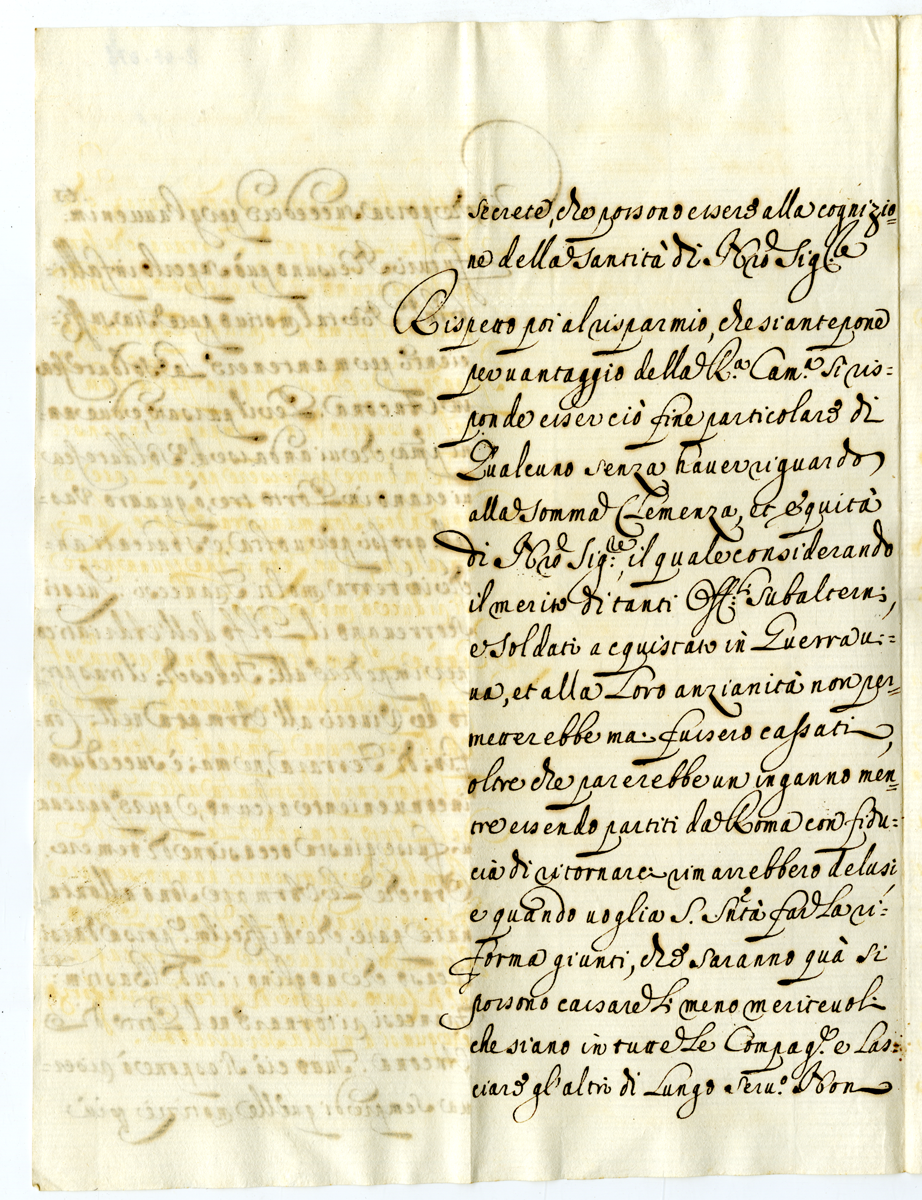 secrete, che possono essere alla cognizio=
ne della Santità di Nrõ Sig.re
Rispetto poi al risparmio, che si antepone
per uantaggio della R.a Cam.a si ris=
ponde esser ciò fine particolare di
Qualcuno senza hauer riguardo
alla somma Clemenza, et equità
di Nrõ Sig.re, il quale considerando
il merito di tanti Off.li Subalterni,
e Soldati acquistato in Guerra ui=
ua, et alla Loro anzianità non per=
metterebbe mai fussero cassati,
oltre che parerebbe un inganno men=
tre essendo partiti da Roma con fidu=
cia di ritornare rimarrebbero delusi
e quando uoglia S. Sntà far La ri=
forma giunti, che saranno quà si
possono cassare li meno meriteuoli
che siano in tutte Le Compag.e e Las=
ciare gl'altri di Lungo seru.o Non